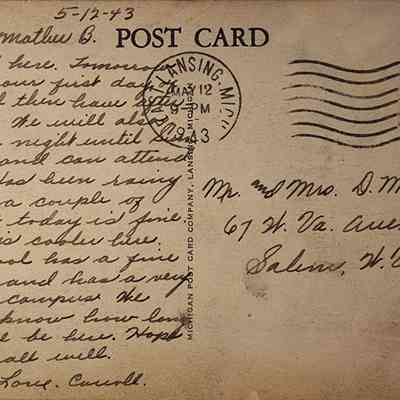 5-12-43
Mother B. POST CARD
here. Tomorrow
our first day of
then have
We will also
night until
and can attend
Has been rainy
a couple of
today is fine.
is cooler here.
has a fine
and has a very
campus. We
know how long
be here. Hope
all well.
Love, Carroll.
LANSING, MICH.
MAY 12
9-PM
1943
MICHIGAN POST CARD COMPANY, LANSING, MICHIGAN
Mr. and Mrs. D. M
67 W. Va. Ave
Salem, W.